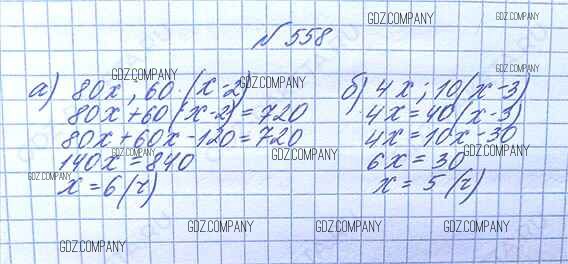 GDZ.COMPANY GDZ.COMPANY
№558
GDZ.COMPANY GDZ.COMPANY
а) 80x; 60·(x-2) б) 4x; 10(x-3)
80x+60(x-2)=720 4x=40(x-3)
80x+60x-120=720 4x=10x-30
GDZ.COMPANY GDZ.COMPANY GDZ.COMPANY
140x=840 6x=30
GDZ.COMPANY
x=6(ч) x=5(ч)
GDZ.COMPANY GDZ.COMPANY GDZ.COMPANY
GDZ.COMPANY